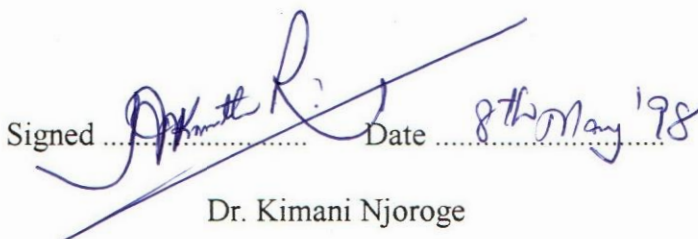 Signed ........................ Date 8th May '98
Dr. Kimani Njoroge